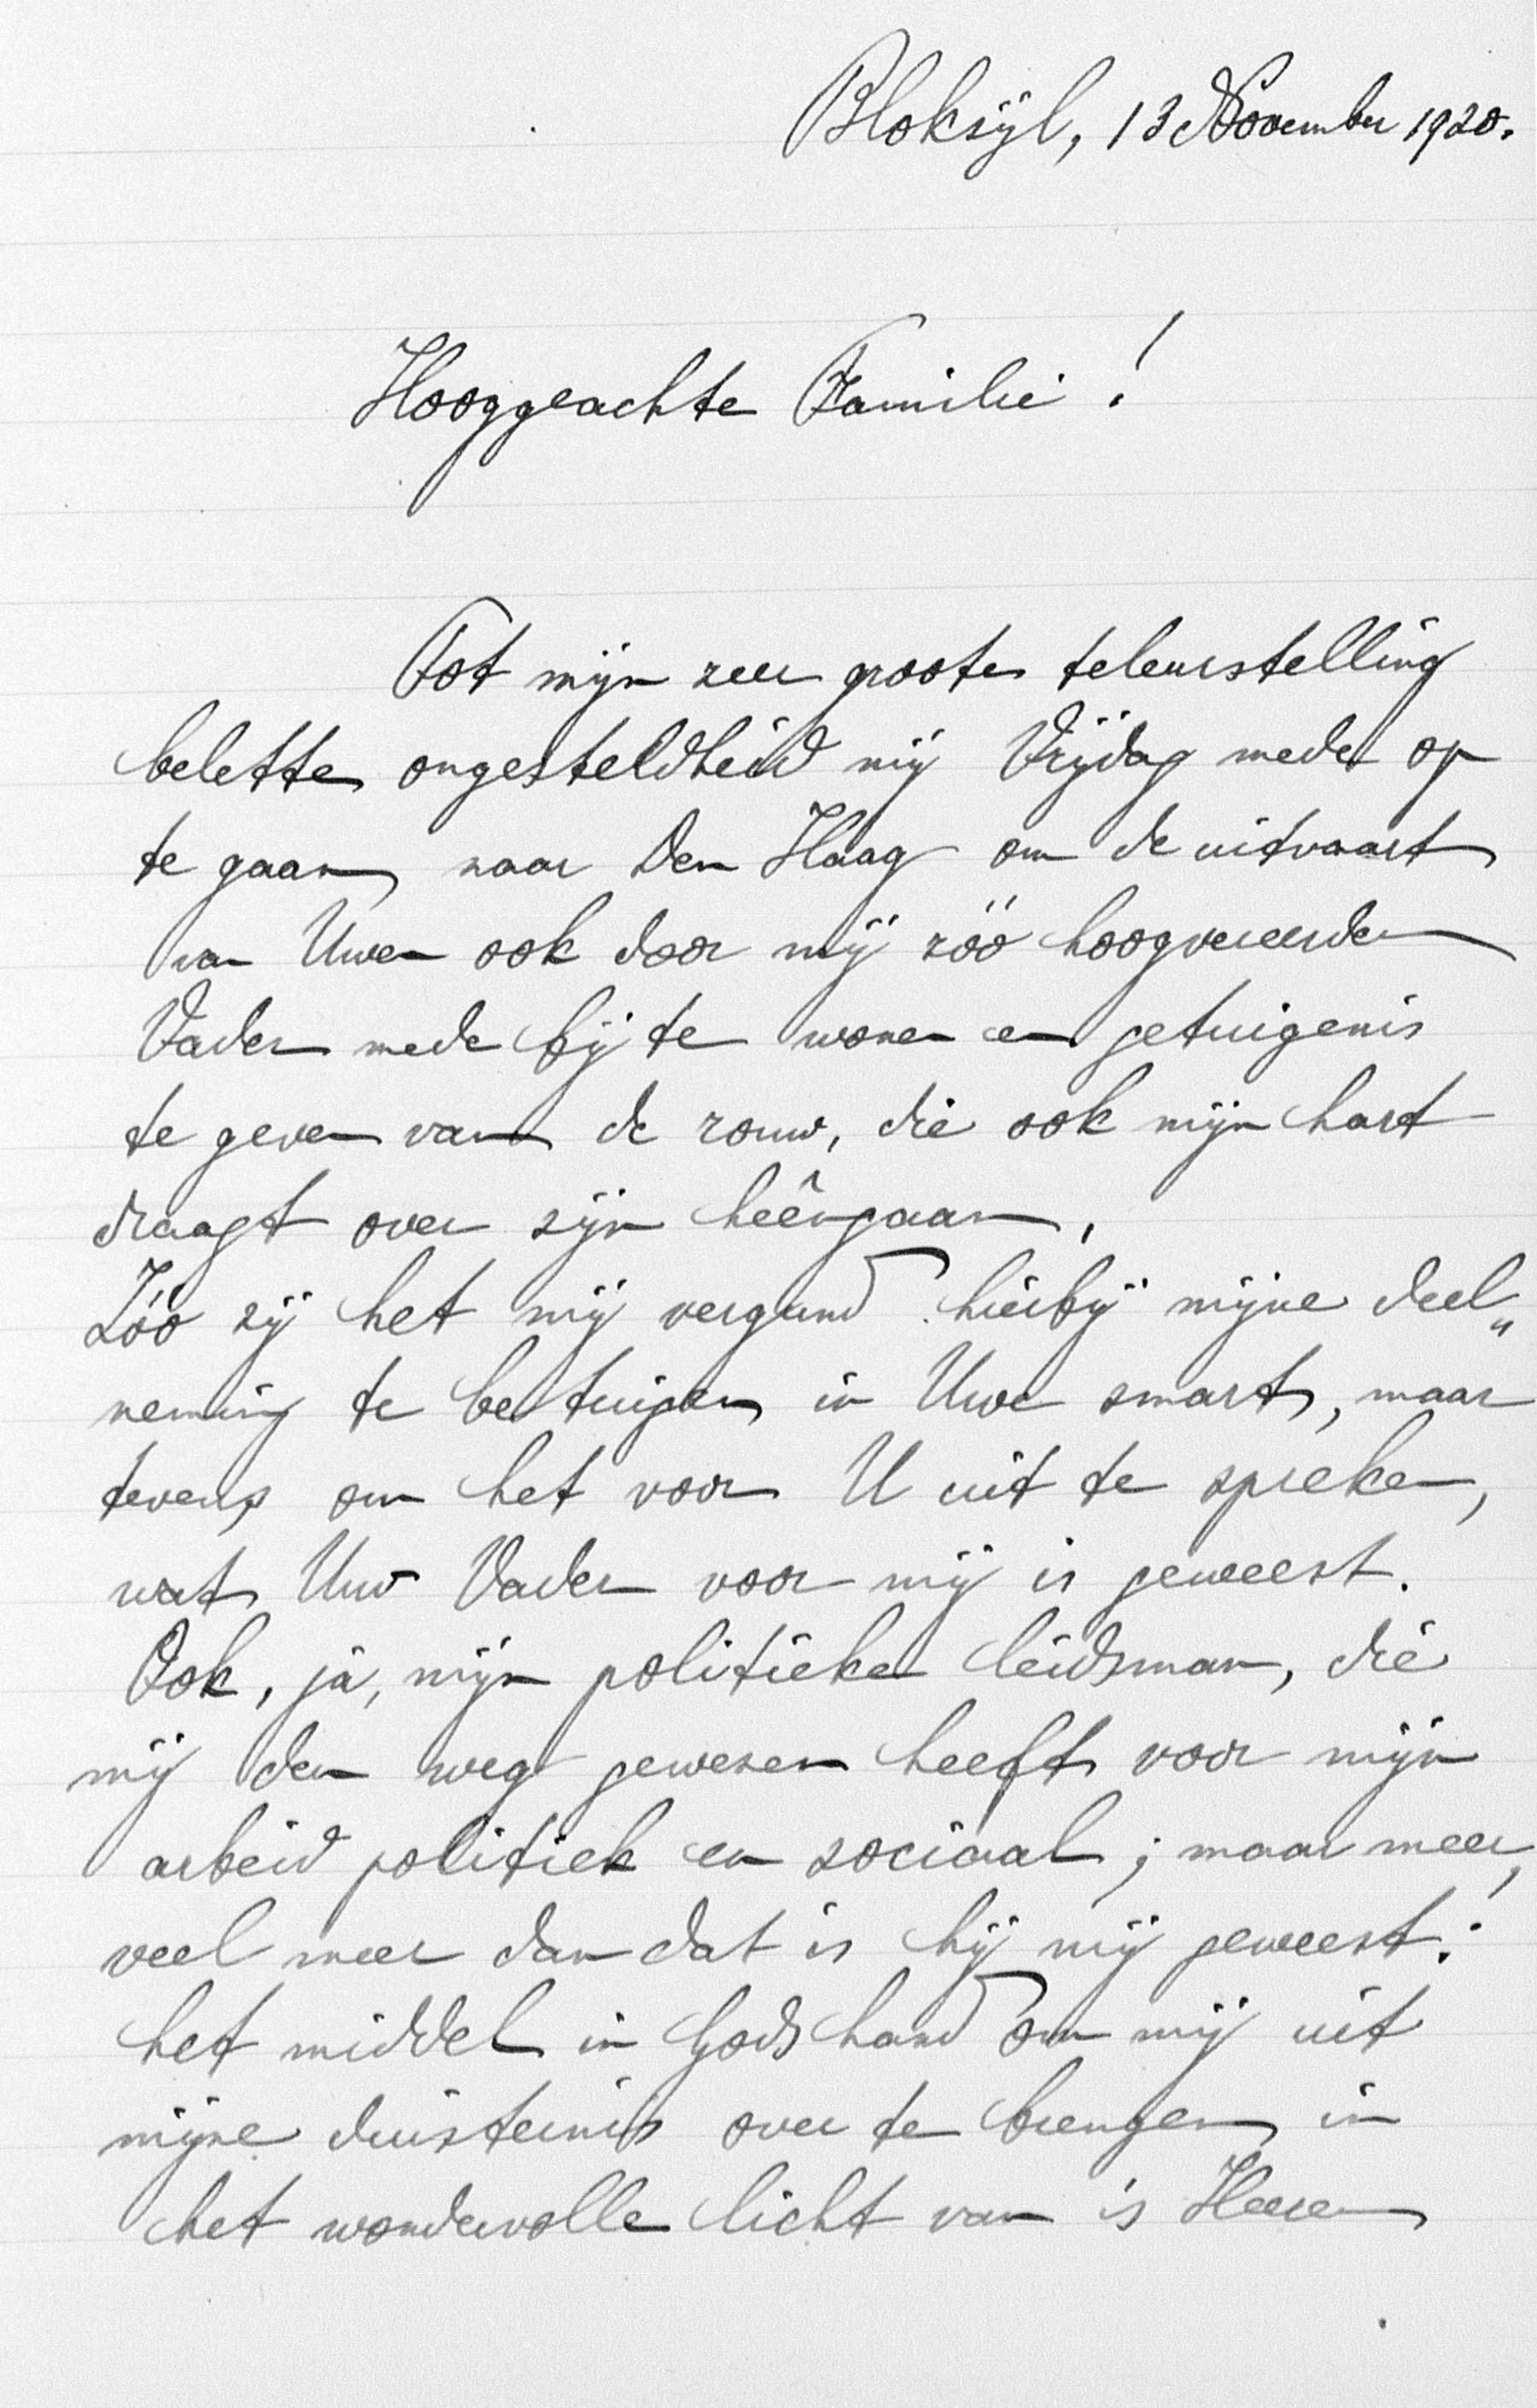 Bloksijl, 13 November 1920.
Hooggeachte Familie!
Tot mijn zeer groote teleurstelling
belette ongesteldheid mij Vrijdag mede op
te gaan naar Den Haag om de uitvaart
van Uwen ook door mij zóó hoogvereerden
Vader mede bij te wonen en getuigenis
te geven van de rouw, die ook mijn hart
draagt over zijn heêngaan.
Zóó zij het mij vergund hierbij mijne deel„
neming te betuigen in Uwe smart, maar
tevens om het voor U uit te spreken,
wat Uw Vader voor mij is geweest.
Ook, ja, mijn politieke leidsman, die
mij den weg gewezen heeft voor mijn
arbeid politiek en sociaal; maar meer,
veel meer dan dat is hij mij geweest:
het middel in Gods hand om mij uit
mijne duisternis over te brengen in
het wondervolle licht van 's Heeren